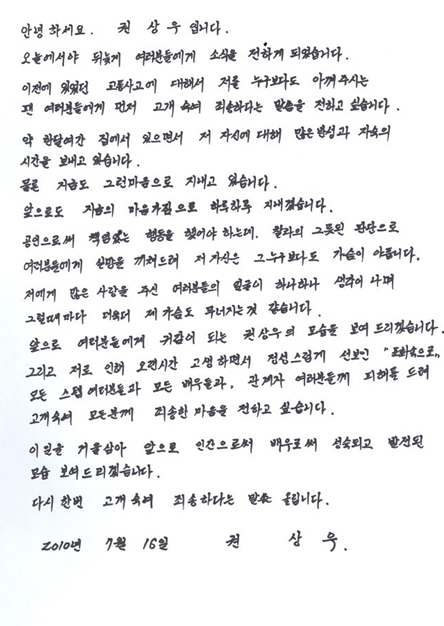 안녕하세요. 권상우입니다.
오늘에서야 뒤늦게 여러분들에게 소식을 전하게 되었습니다.
이전에 있었던 교통사고에 대해서 저를 누구보다도 아껴주시는
팬 여러분들에게 먼저 고개 숙여 죄송하다는 말씀을 전하고 싶습니다.
약 한달여간 집에서 있으면서 저 자신에 대해 많은 반성과 자숙의
시간을 보내고 있습니다.
물론 지금도 그런마음으로 지내고 있습니다.
앞으로도 지금의 마음가짐으로 하루하루 지내겠습니다.
공인으로써 책임있는 행동을 했어야 하는데. 찰라의 그릇된 판단으로
여러분들에게 실망을 끼쳐드려 저 자신은 그누구보다도 가슴이 아픕니다.
저에게 많은 사랑을 주신 여러분들의 얼굴이 하나하나 생각이 나며
그럴때마다 더욱더 제 가슴도 무너지는것 같습니다.
앞으로 여러분들에게 귀감이 되는 권상우의 모습을 보여 드리겠습니다.
그리고 저로 인해 오랜시간 고생하면서 정성스럽게 선보인 "포화속으로"
모든 스텝여러분들과 모든 배우들과, 관계자 여러분들께 피해를 드려
고개숙여 모든분께 죄송한 마음을 전하고 싶습니다.
이 일을 거울삼아 앞으로 인간으로써 배우로써 성숙되고 발전된
모습 보여드리겠습니다.
다시 한번 고개 숙여 죄송하다는 말씀 올립니다.
2010년 7월 16일 권 상 우.